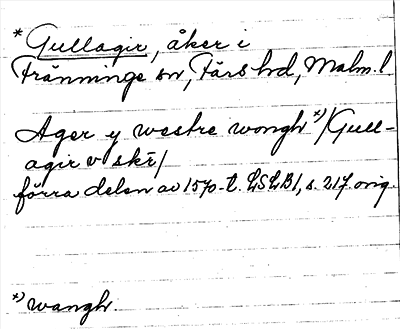 * Gullagir, åker i
Fränninge sn, Färs hd, Malm. l
Ager y westre wongh *)/Gull-
agir v skr/
förra delen av 1570-t. LSLB1, s. 217. orig.
*) wangh.